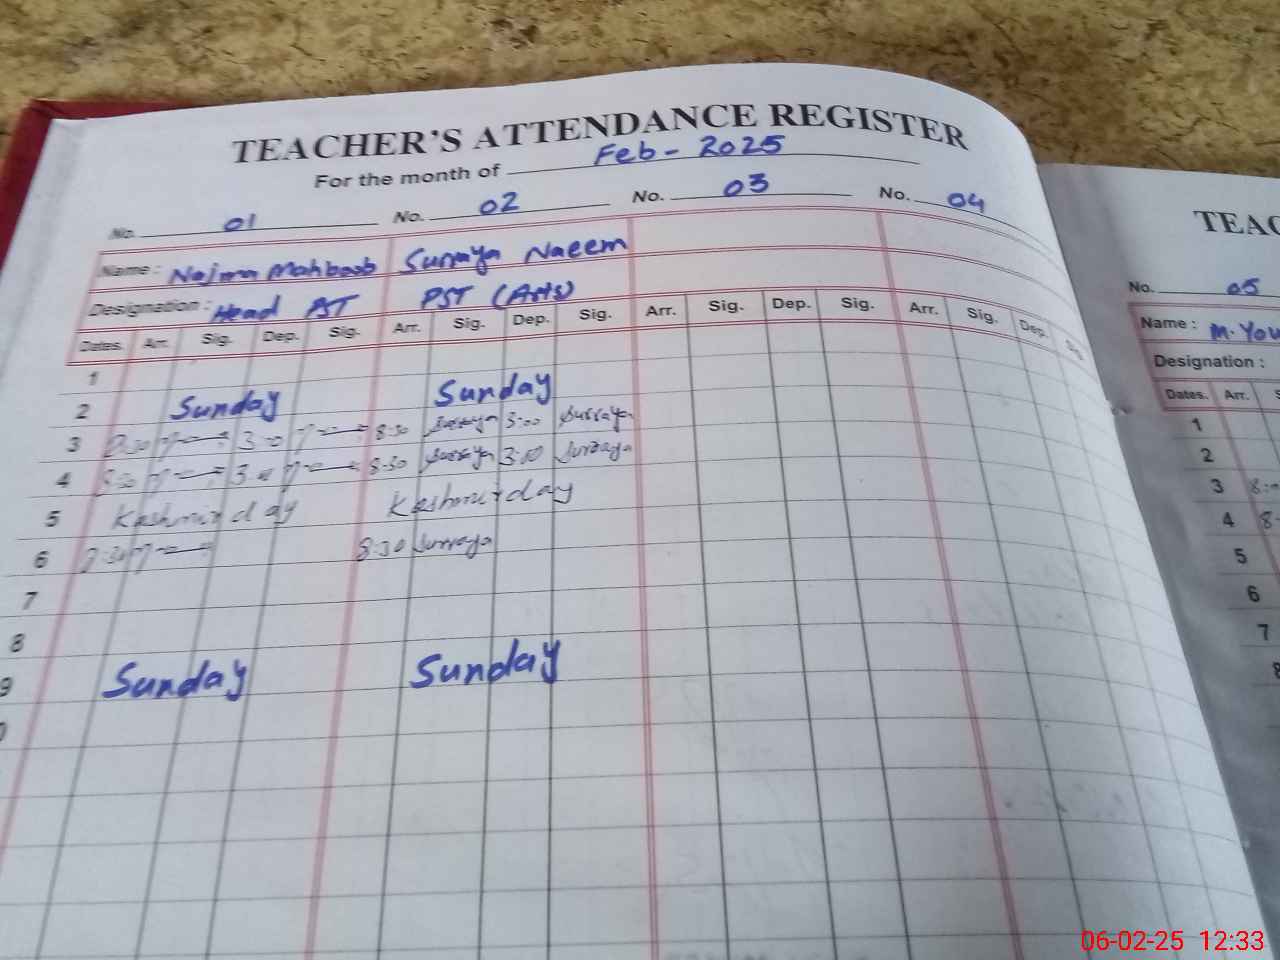 TEACHER'S ATTENDANCE REGISTER
For the month of Feb - 2025
No. 01 No. 02 No. 03 No. 04
Name : Najma Mahboob Surraya Naeem
Designation : Head PST PST (Arts)
Dates. Arr. Sig. Dep. Sig. Arr. Sig. Dep. Sig. Arr. Sig. Dep. Sig. Arr. Sig. Dep. Sig.
1
2 Sunday Sunday
3 3:00 8:30 Surraya 3:00 Surraya
4 3:00 8:30 Surraya 3:00 Surraya
5 Kashmir day Kashmir day
6 8:30 Surraya
7
8
9 Sunday Sunday
TEAC
No. 05
Name : M. You
Designation :
Dates. Arr.
1
2
3
4
5
6
7
8
06-02-25 12:33